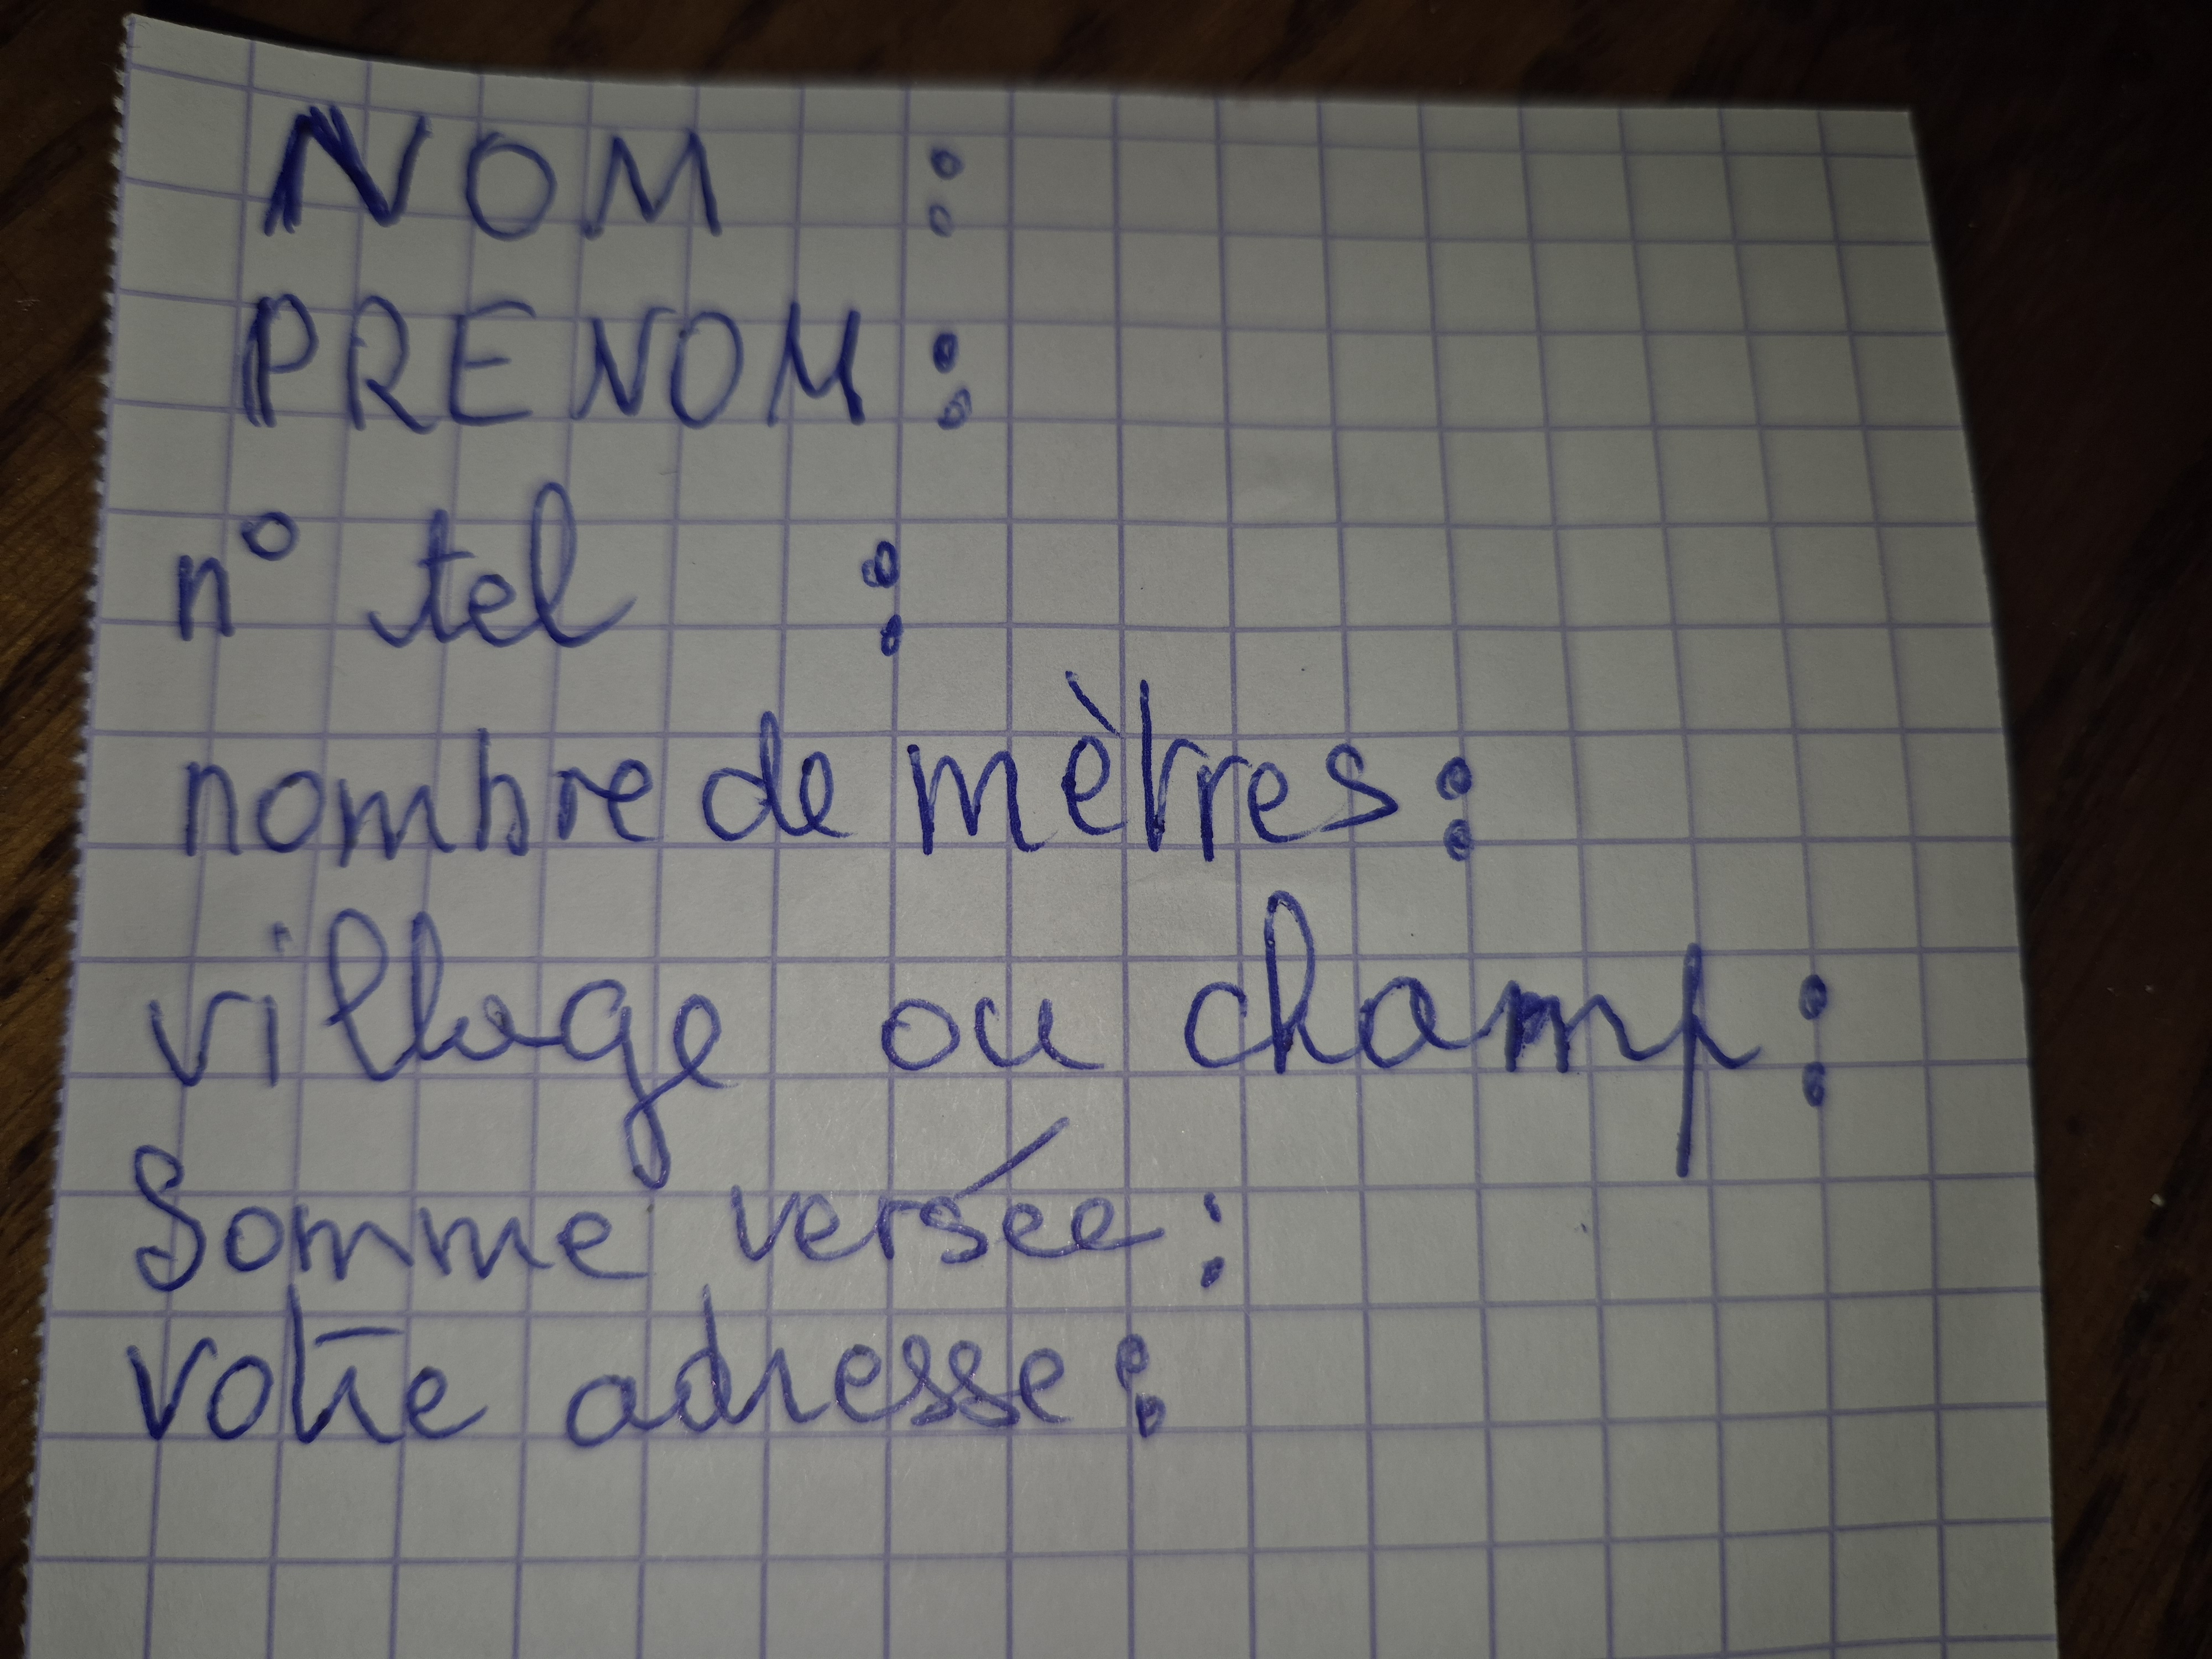 NOM :
PRENOM :
n° tel :
nombre de mètres :
village ou champ :
Somme versée :
votre adresse :